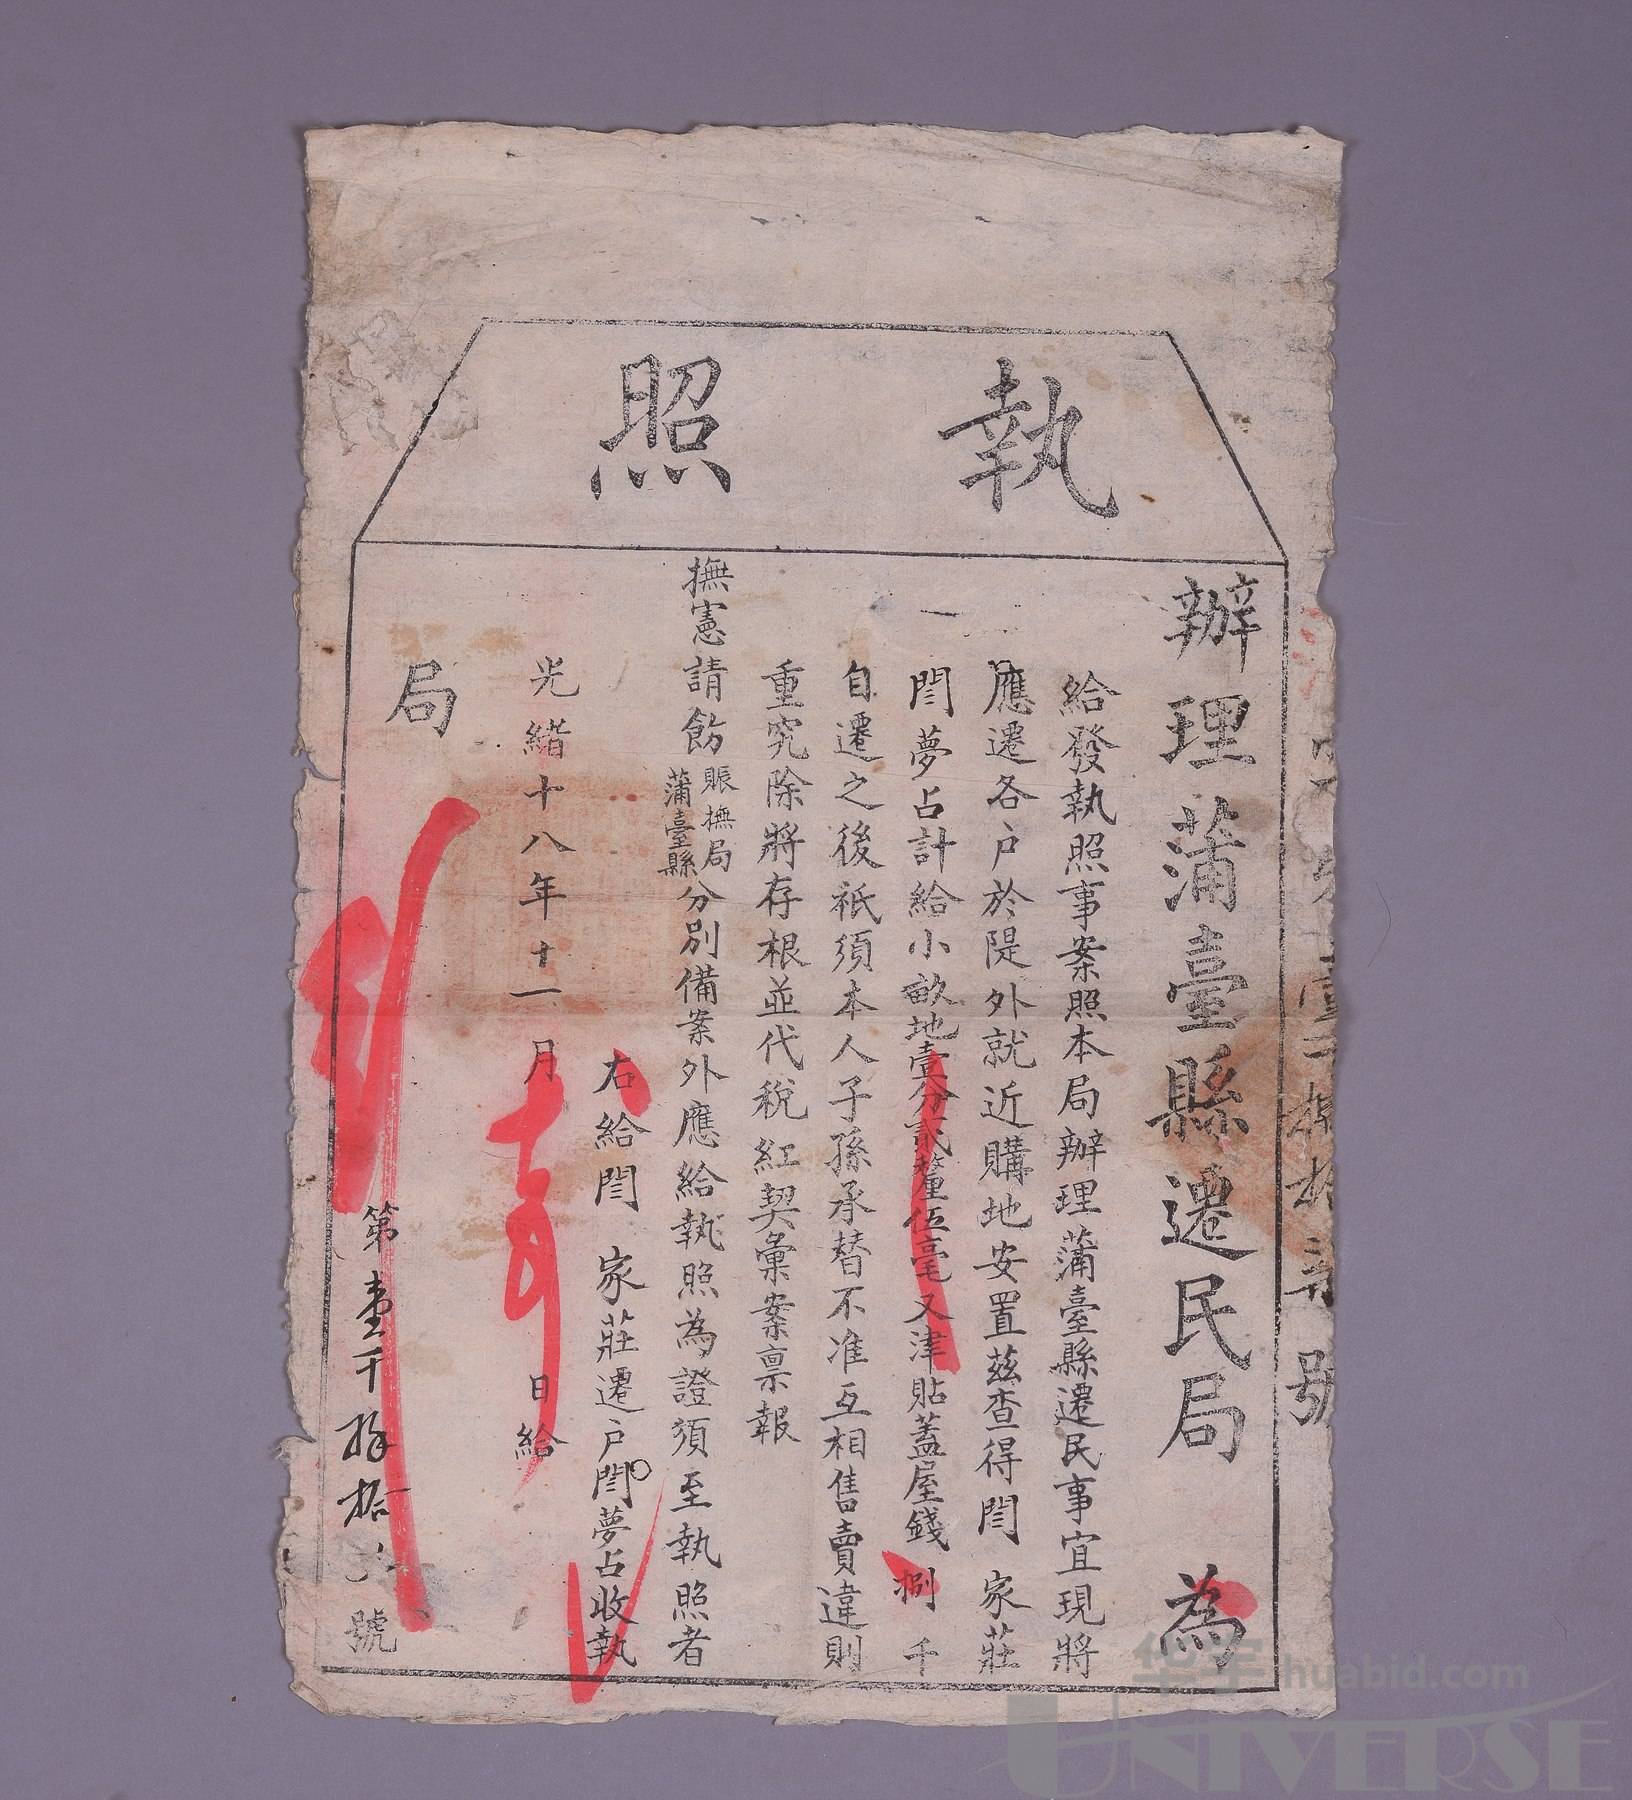 執照
辦理蒲臺縣遷民局為
給發執照事案照本局辦理蒲臺縣遷民事宜現將
應遷各户於隄外就近購地安置茲查得閆家莊
一閆夢占計給小畝地壹分貳釐伍毫又津貼蓋屋錢捌千
自遷之後祇須本人子孫承替不准互相售賣違則
重究除將存根並代稅紅契彙案禀報
撫憲請飭
賑撫局
蒲臺縣
分別備案外應給執照為證須至執照者
右給閆家莊遷户閆夢占收執
光緒十八年十一月日給
局
第壹千
拾
號
號
华宇huabid.com
UNIVERSE